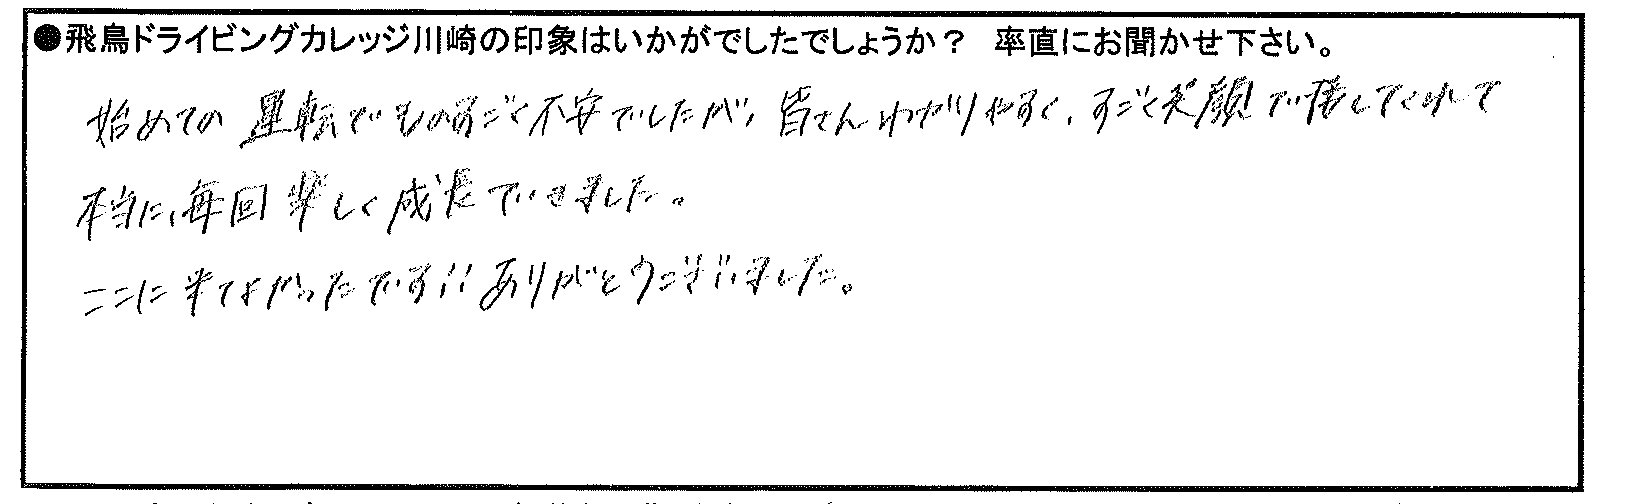 ●飛鳥ドライビングカレッジ川崎の印象はいかがでしたでしょうか？ 率直にお聞かせ下さい。
始めての運転でものすごく不安でしたが、皆さんわかりやすく、すごく笑顔で接してくれて
本当に、毎回楽しく成長でいきました。
ここに来てよかったです!!ありがとうございました。